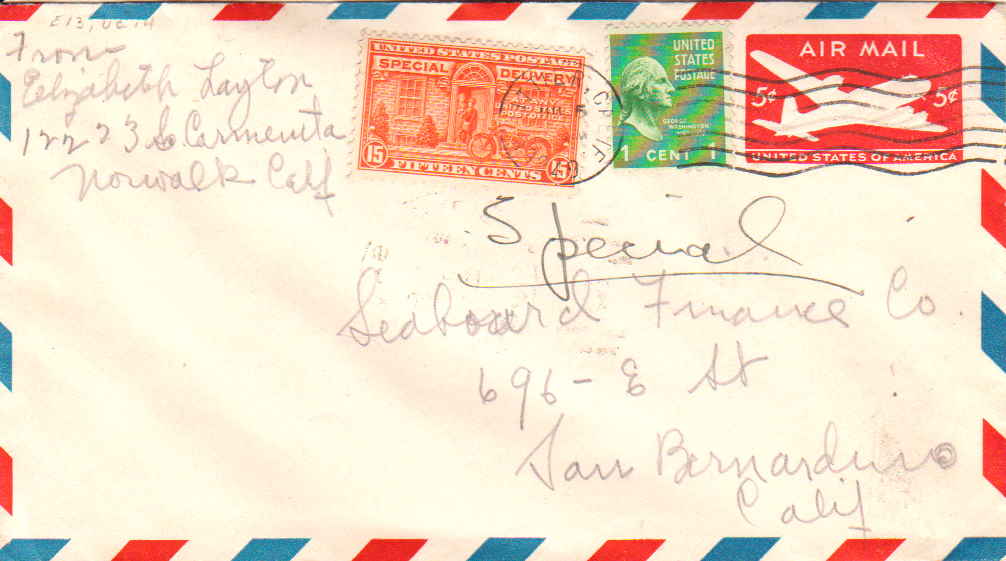 E13, UC 14
From
Elizabeth Layton
12223 So Carmenita
Norwalk Calif
UNITED STATES POSTAGE
SPECIAL DELIVERY
AT ANY
UNITED STATES
POST OFFICE
15 FIFTEEN CENTS 15
UNITED
STATES
POSTAGE
GEORGE
WASHINGTON
1 CENT 1
AIR MAIL
5¢ 5¢
UNITED STATES OF AMERICA
Special
Seaboard Finance Co.
696 - E St
San Bernardino
Calif